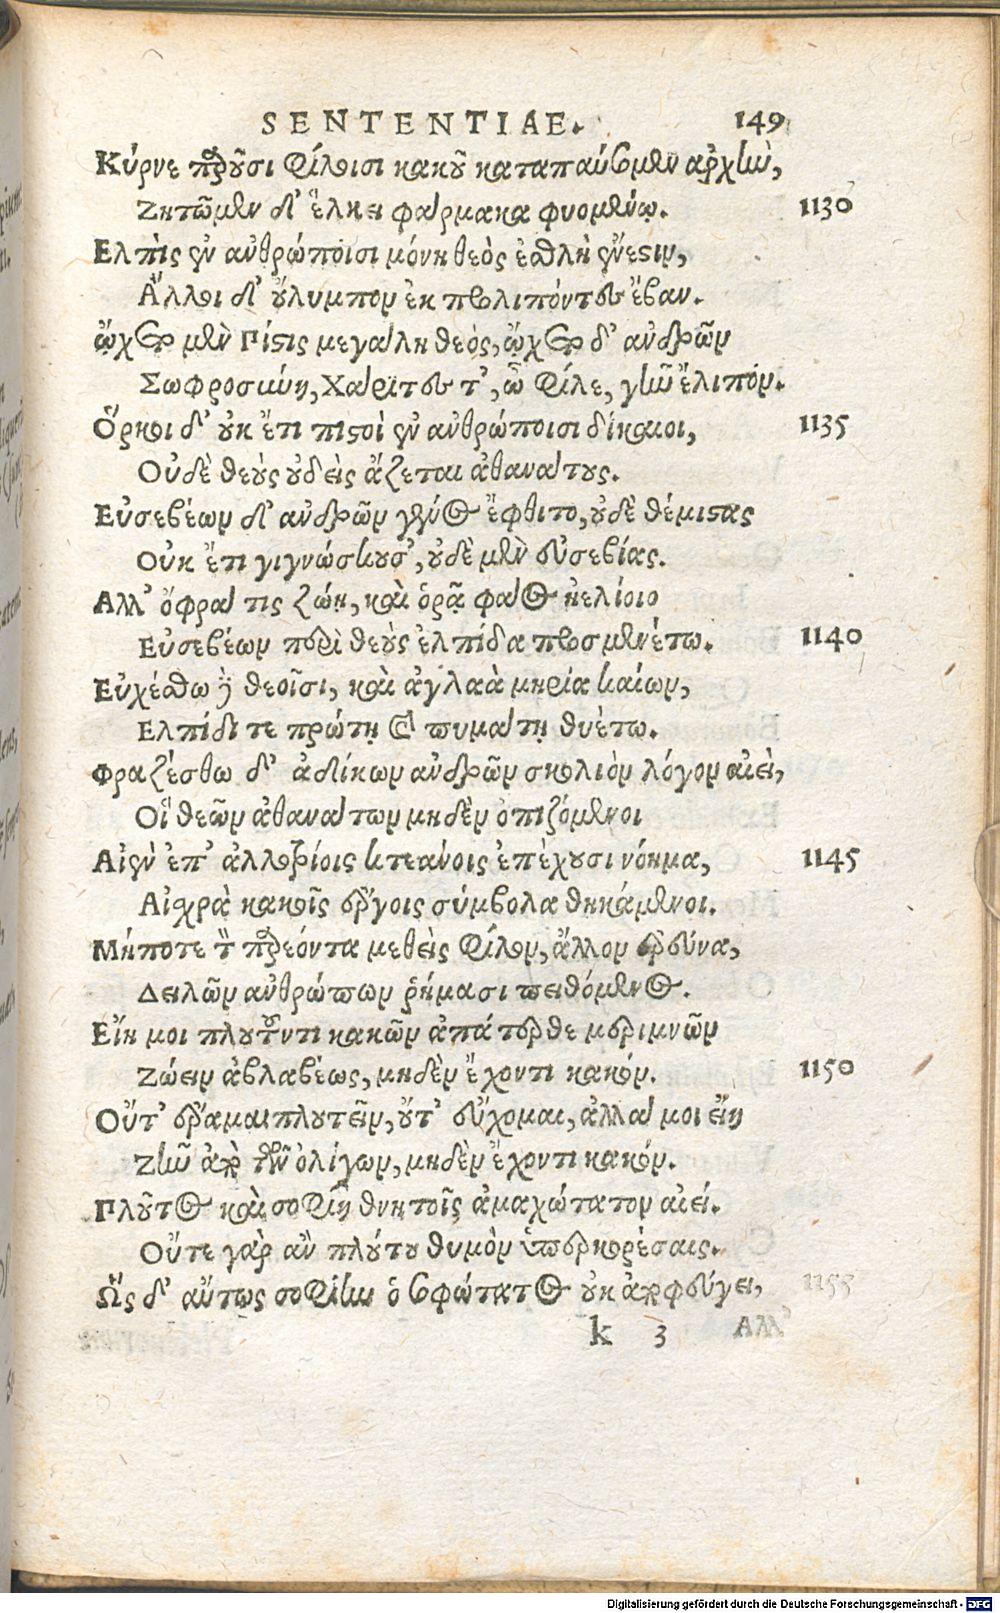 SENTENTIAE. 149
Κύρνε παροῦσι φίλοισι κακοῦ καταπαύσομεν ἀρχὴν,
Ζητῶμεν δ' ἕλκει φάρμακα φυομένῳ. 1130
Ελπὶς ἐν ἀνθρώποισι μόνη θεὸς ἐσθλὴ ἔνεστιν,
Ἄλλοι δ' οὔλυμπον ἐκ προλιπόντες ἔβαν.
ᾤχετο μὲν Πίστις μεγάλη θεός, ᾤχετο δ' ἀνδρῶν
Σωφροσύνη, Χάριτες τ', ὦ φίλε, γῆν ἔλιπον.
Ὅρκοι δ' οὐκ ἔτι πιστοὶ ἐν ἀνθρώποισι δίκαιοι, 1135
Οὐδὲ θεοὺς οὐδεὶς ἄζεται ἀθανάτους.
Εὐσεβέων δ' ἀνδρῶν γένος ἔφθιτο, οὐδὲ θέμιστας
Οὐκ ἔτι γιγνώσκουσ', οὐδὲ μὲν εὐσεβίας.
Αλλ' ὄφρα τις ζώῃ, καὶ ὁρᾷ φάος ἠελίοιο
Εὐσεβέων περὶ θεοὺς ἐλπίδα προσμενέτω. 1140
Εὐχέσθω δὲ θεοῖσι, καὶ ἀγλαὰ μηρία καίων,
Ελπίδι τε πρώτῃ καὶ πυμάτῃ θυέτω.
Φραζέσθω δ' ἀδίκων ἀνδρῶν σκολιὸν λόγον αἰεὶ,
Οἳ θεῶν ἀθανάτων μηδὲν ὀπιζόμενοι
Αἰὲν ἐπ' ἀλλοτρίοις κτεάνοις ἐπέχουσι νόημα, 1145
Αἰσχρὰ κακοῖς ἔργοις σύμβολα θηκάμενοι.
Μήποτε τὸν παρεόντα μεθεὶς φίλον, ἄλλον ἐρεύνα,
Δειλῶν ἀνθρώπων ῥήμασι πειθόμενος.
Εἴη μοι πλουτοῦντι κακῶν ἀπάτερθε μεριμνῶν
Ζώειν ἀβλαβέως, μηδὲν ἔχοντι κακόν. 1150
Οὔτ' ἔραμαι πλουτεῖν, οὔτ' εὔχομαι, ἀλλά μοι εἴη
Ζῆν ἀπὸ τῶν ὀλίγων, μηδὲν ἔχοντι κακόν.
Πλοῦτος καὶ σοφίη θνητοῖς ἀμαχώτατον αἰεί.
Οὔτε γὰρ ἂν πλούτου θυμὸν ὑπερκορέσαις.
Ὣς δ' αὔτως σοφίην ὁ σοφώτατος οὐκ ἀποφεύγει, 1155
k 3 Αλλ'
Digitalisierung gefördert durch die Deutsche Forschungsgemeinschaft - DFG